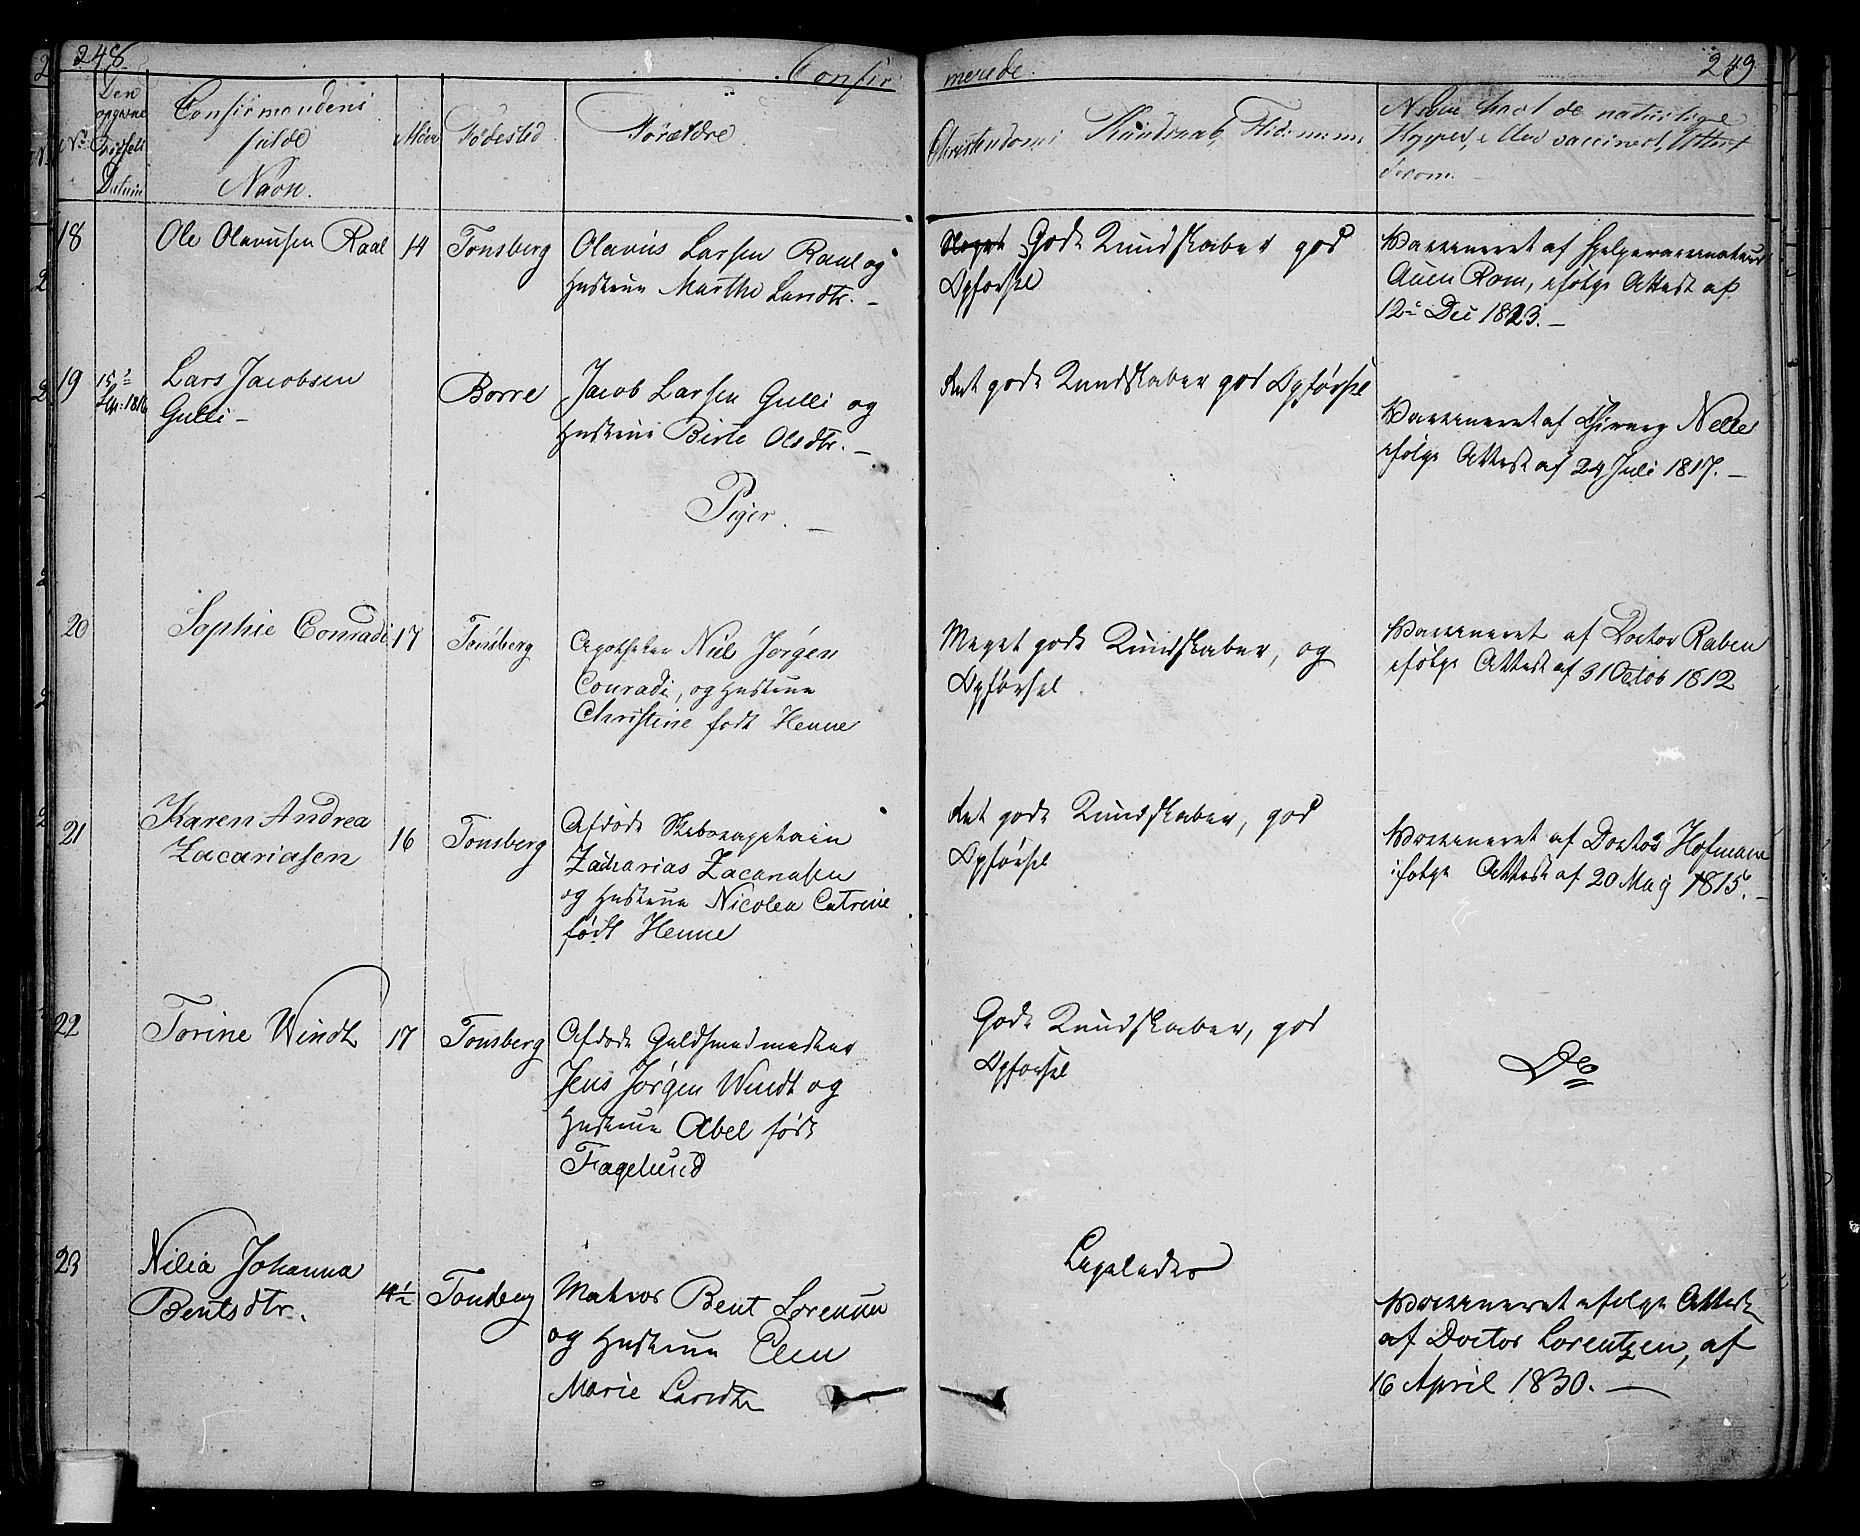 248
Confir
merede
249
Den
opgivne
Fødsels
Datum
No
Confirmandens
fulde
Navn.
Alder
Fødested
Forældre
Christendoms Kundskab,
Naar havt de naturlige
Kopper, eller vaccineret, Attest
derom.
18
Ole Olavusen Raal
14
Tonsberg
Olavus Larsen Raal og
Hustrue Marthe Larsdtr. –
Gode Kundskaber god
Opførsel
Vaccineret af Hjelpevaccinateur
Auen Rom, ifølge Attest af
12te Dec 1823. –
19
15de
Sep: 1816
Lars Jacobsen
Gulli –
Borre
Jacob Larsen Gulli og
Hustrue Birte Olsdtr. –
Ret gode Kundskaber god Opførsel
Vaccineret af Chirurg Nelle
ifølge Attest af 24 Juli 1817. –
Piger. –
20
Sophie Conradi
17
Tonsberg
Apotheker Niels Jørgen
Conradi, og Hustrue
Christine født Henne
Meget gode Kundskaber, og
Opførsel
Vaccineret af Doctor Raben
ifølge Attest af 31 Octob 1812
21
Karen Andrea
Zacariasen
16
Tonsberg
Afdøde Skibscapitain
Zacharias Zacariasen
og Hustrue Nicolea Catrine
født Henne
Ret gode Kundskaber, god
Opførsel
Vaccineret af Doctor Hofmann
ifølge Attest af 20 May 1815. –
22
Torine Windt
17
Tonsberg
Afdøde Guldsmedmester
Jens Jørgen Windt og
Hustrue Abel født
Fagelund
Gode Kundskaber, god
Opførsel
Do
23
Nilia Johanna
Bentsdtr.
14½
Tonsberg
Matros Bent Lorensen
og Hustrue Elen
Marie Larsdtr
Ligeledes
Vaccineret ifølge Attest
af Doctor Lorentzen, af
16 April 1830. –